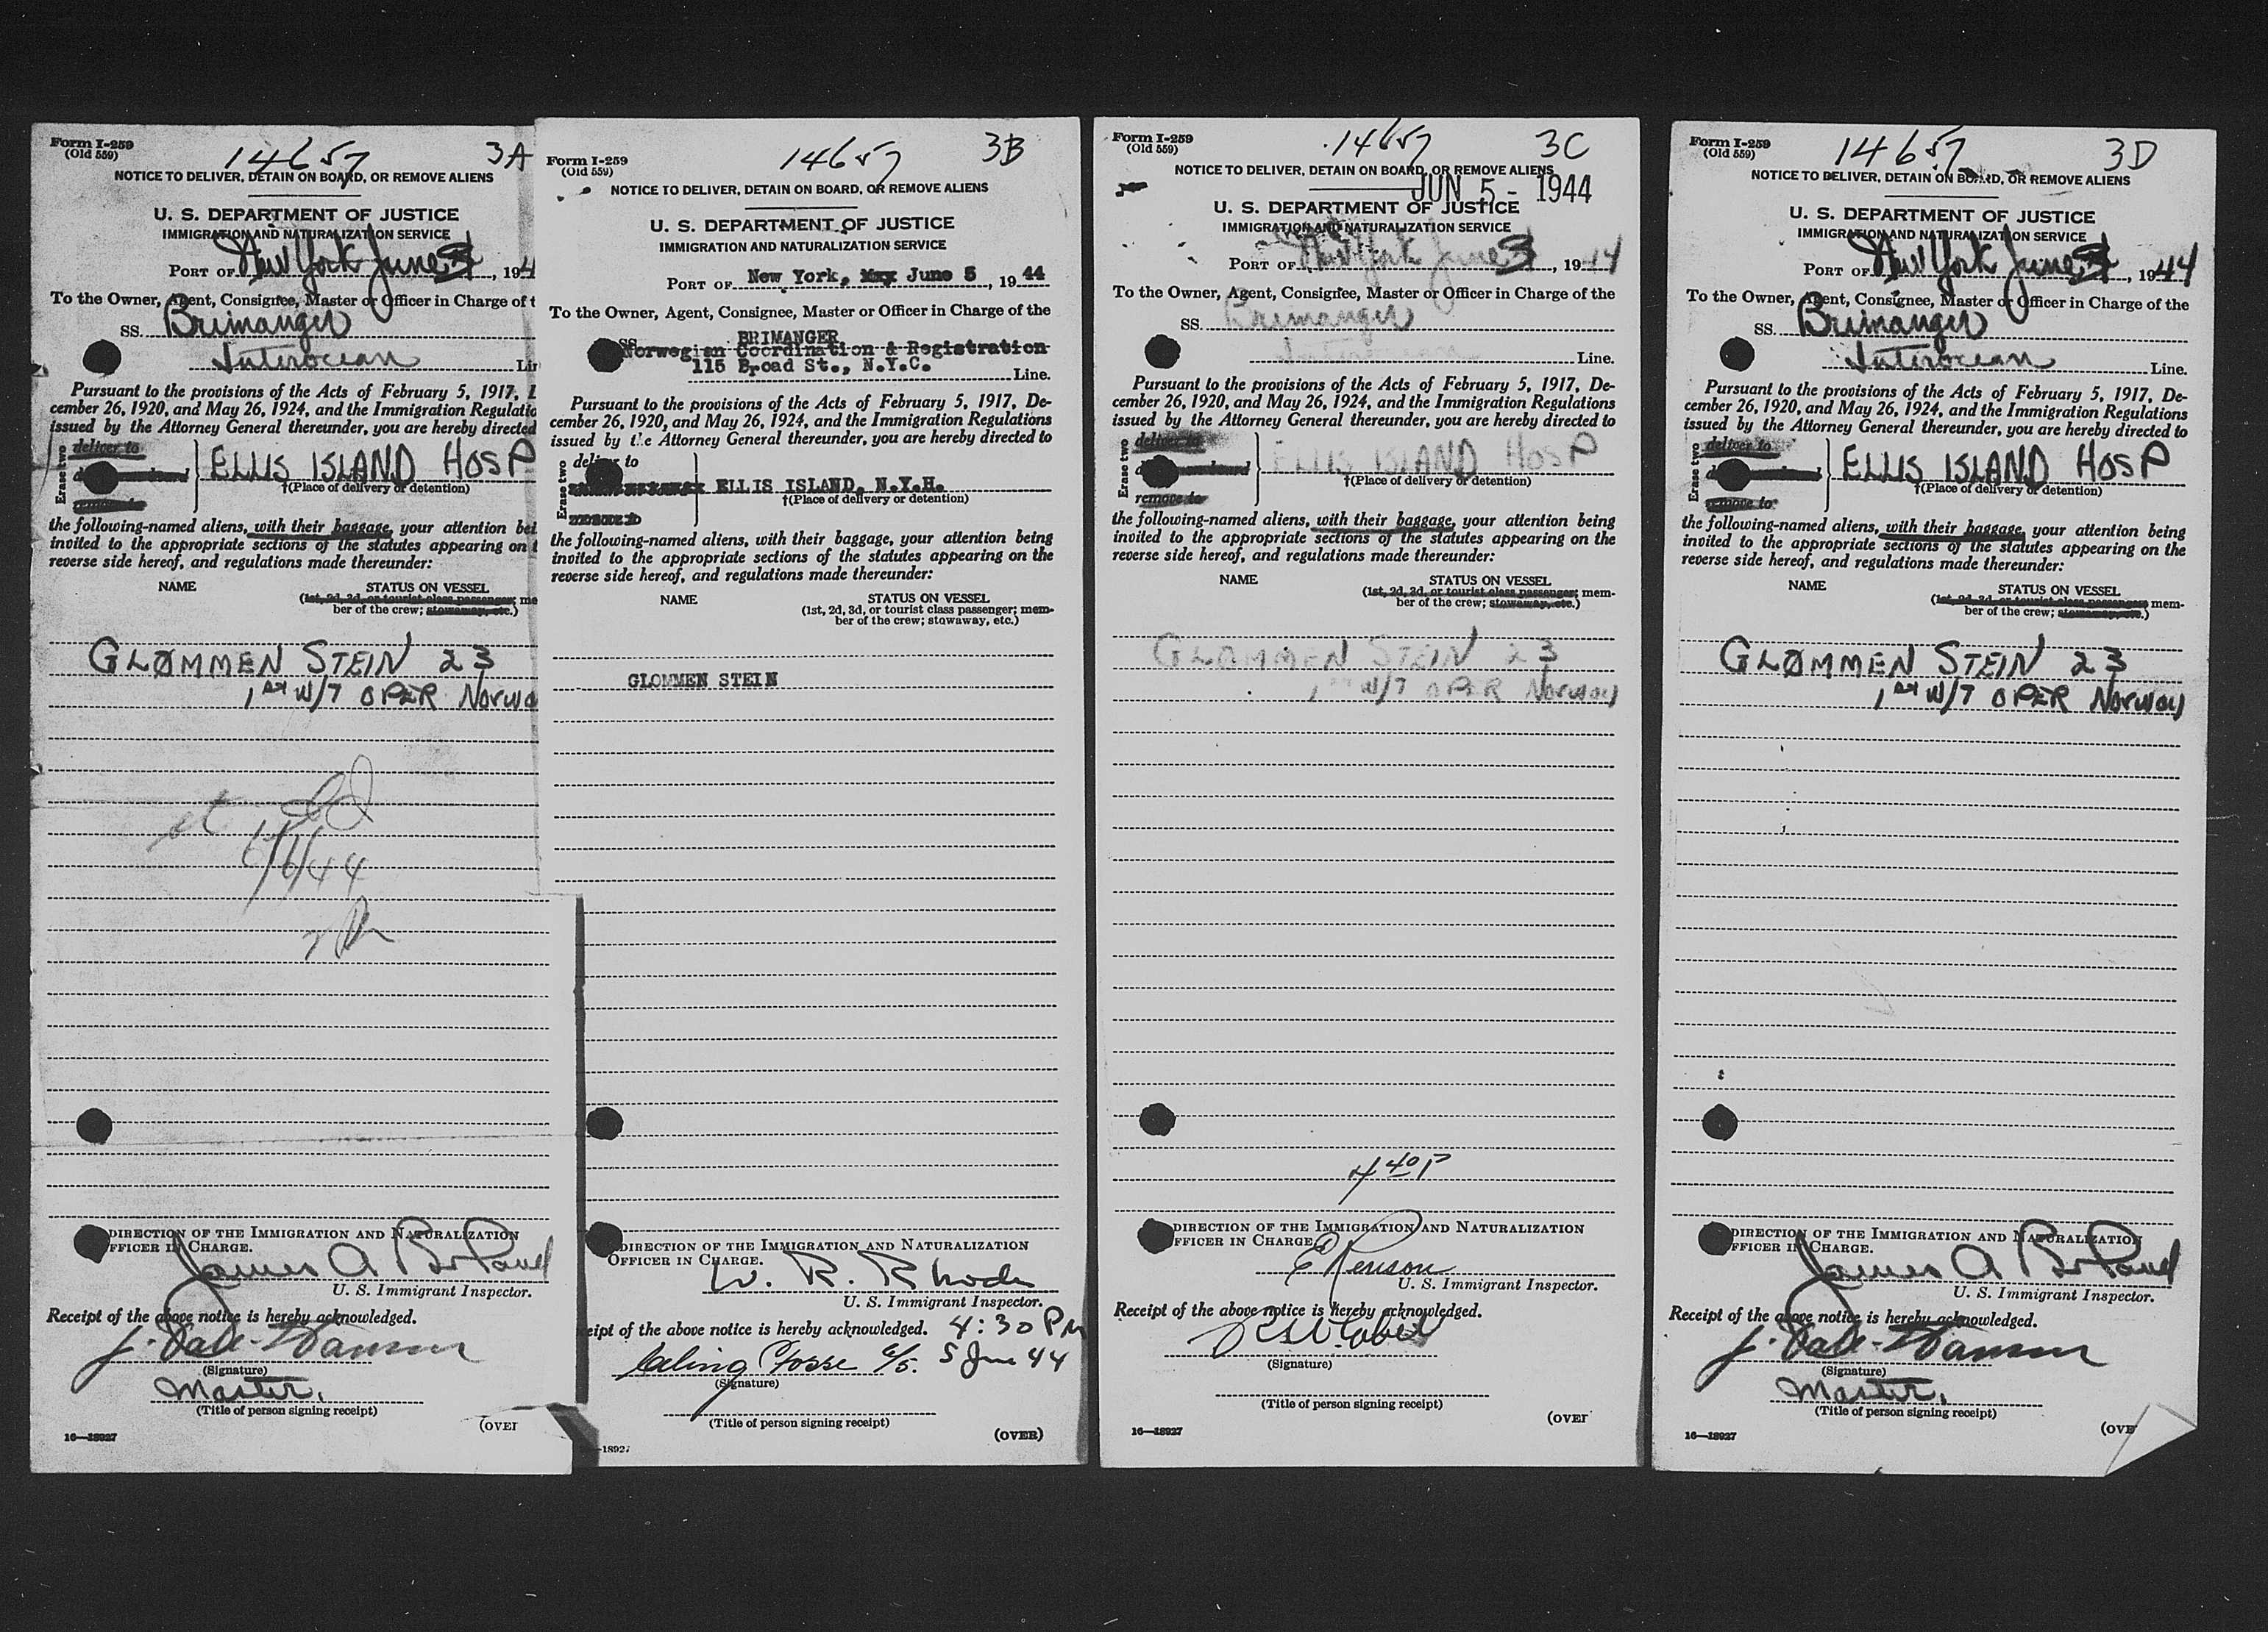 Form I-259
(Old 559)
14657
3A
NOTICE TO DELIVER, DETAIN ON BOARD, OR REMOVE ALIENS
U. S. DEPARTMENT OF JUSTICE
IMMIGRATION AND NATURALIZATION SERVICE
PORT OF New York June 5, 194
To the Owner, Agent, Consignee, Master or Officer in Charge of t
SS. Brimanger
Interocean Lin
Pursuant to the provisions of the Acts of February 5, 1917, D
cember 26, 1920, and May 26, 1924, and the Immigration Regulatio
issued by the Attorney General thereunder, you are hereby directed
Erase two
deliver to
remove to
ELLIS ISLAND HOSP
†(Place of delivery or detention)
the following-named aliens, with their baggage, your attention bei
invited to the appropriate sections of the statutes appearing on t
reverse side hereof, and regulations made thereunder:
NAME
STATUS ON VESSEL
(1st, 2d, 3d, or tourist class passenger; me
ber of the crew; stowaway, etc.)
GLØMMEN STEIN 23
1st W/T OPER Norwa
6/6/44
DIRECTION OF THE IMMIGRATION AND NATURALIZATION
FFICER IN CHARGE.
James A
U. S. Immigrant Inspector.
Receipt of the above notice is hereby acknowledged.
J. Dall-
(Signature)
Master.
(Title of person signing receipt)
(OVER
16—18927
Form I-259
(Old 559)
14657
3B
NOTICE TO DELIVER, DETAIN ON BOARD, OR REMOVE ALIENS
U. S. DEPARTMENT OF JUSTICE
IMMIGRATION AND NATURALIZATION SERVICE
PORT OF New York, June 5, 1944
To the Owner, Agent, Consignee, Master or Officer in Charge of the
BRIMANGER
SS. Norwegian Coordination & Registration
115 Broad St., N.Y.C. Line.
Pursuant to the provisions of the Acts of February 5, 1917, De-
cember 26, 1920, and May 26, 1924, and the Immigration Regulations
issued by the Attorney General thereunder, you are hereby directed to
Erase two
deliver to
ELLIS ISLAND, N.Y.H.
†(Place of delivery or detention)
the following-named aliens, with their baggage, your attention being
invited to the appropriate sections of the statutes appearing on the
reverse side hereof, and regulations made thereunder:
NAME
STATUS ON VESSEL
(1st, 2d, 3d, or tourist class passenger; mem-
ber of the crew; stowaway, etc.)
GLOMMEN STEIN
DIRECTION OF THE IMMIGRATION AND NATURALIZATION
OFFICER IN CHARGE.
W. R. Rhode
U. S. Immigrant Inspector.
eipt of the above notice is hereby acknowledged. 4:30 PM
Fosse 6/5. 5 June 44
(Signature)
(Title of person signing receipt)
(OVER)
—18927
Form I-259
(Old 559)
14657
3C
NOTICE TO DELIVER, DETAIN ON BOARD, OR REMOVE ALIENS
JUN 5 - 1944
U. S. DEPARTMENT OF JUSTICE
IMMIGRATION AND NATURALIZATION SERVICE
PORT OF New York June 5, 1944
To the Owner, Agent, Consignee, Master or Officer in Charge of the
SS. Brimanger
Interocean Line.
Pursuant to the provisions of the Acts of February 5, 1917, De-
cember 26, 1920, and May 26, 1924, and the Immigration Regulations
issued by the Attorney General thereunder, you are hereby directed to
Erase two
deliver to
remove to
ELLIS ISLAND HOSP
†(Place of delivery or detention)
the following-named aliens, with their baggage, your attention being
invited to the appropriate sections of the statutes appearing on the
reverse side hereof, and regulations made thereunder:
NAME
STATUS ON VESSEL
(1st, 2d, 3d, or tourist class passenger; mem-
ber of the crew; stowaway, etc.)
GLØMMEN STEIN 23
1st W/T OPER Norway
4 40 P
DIRECTION OF THE IMMIGRATION AND NATURALIZATION
FFICER IN CHARGE.
E Renson
U. S. Immigrant Inspector.
Receipt of the above notice is hereby acknowledged.
(Signature)
(Title of person signing receipt)
(OVER
16—18927
Form I-259
(Old 559)
14657
3D
NOTICE TO DELIVER, DETAIN ON BOARD, OR REMOVE ALIENS
U. S. DEPARTMENT OF JUSTICE
IMMIGRATION AND NATURALIZATION SERVICE
PORT OF New York June 5, 1944
To the Owner, Agent, Consignee, Master or Officer in Charge of the
SS. Brimanger
Interocean Line.
Pursuant to the provisions of the Acts of February 5, 1917, De-
cember 26, 1920, and May 26, 1924, and the Immigration Regulations
issued by the Attorney General thereunder, you are hereby directed to
Erase two
deliver to
remove to
ELLIS ISLAND HOSP
†(Place of delivery or detention)
the following-named aliens, with their baggage, your attention being
invited to the appropriate sections of the statutes appearing on the
reverse side hereof, and regulations made thereunder:
NAME
STATUS ON VESSEL
(1st, 2d, 3d, or tourist class passenger; mem-
ber of the crew; stowaway, etc.)
GLØMMEN STEIN 23
1st W/T OPER Norway
DIRECTION OF THE IMMIGRATION AND NATURALIZATION
FFICER IN CHARGE.
James A
U. S. Immigrant Inspector.
Receipt of the above notice is hereby acknowledged.
J. Dall-
(Signature)
Master.
(Title of person signing receipt)
(OVE
16—18927